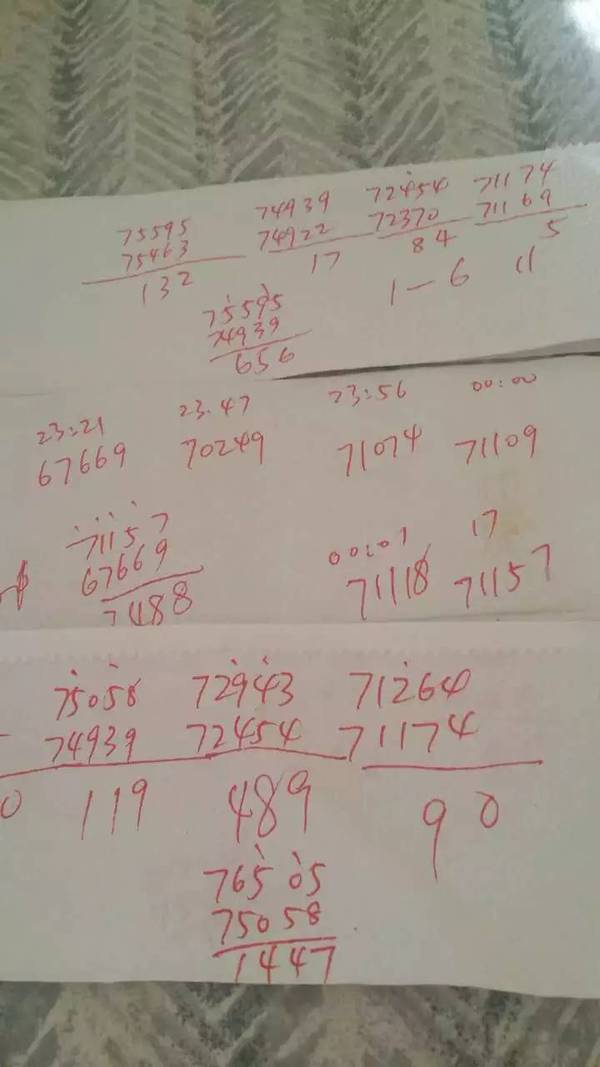 75595 74939 72454 71174
75463 74922 72370 71169
132 17 84 5
75595 1-6 11
74939
656
23:21 23.47 23:56 00:00
67669 70249 71074 71109
71157 00:07 17
67669 71118 71157
7488
75058 72943 71264
74939 72454 71174
0 119 489 90
76505
75058
1447